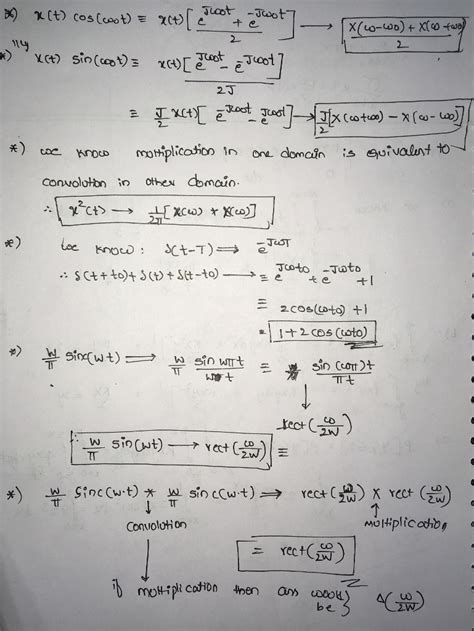 *) x(t) cos(ω0t) ≡ x(t) [ (e^Jω0t + e^-Jω0t) / 2 ] → (X(ω-ω0) + X(ω+ω0)) / 2
*) ||ly x(t) sin(ω0t) ≡ x(t) [ (e^Jω0t - e^-Jω0t) / 2J ]
≡ J/2 x(t) [ e^-Jω0t - e^Jω0t ] → J/2 [X(ω+ω0) - X(ω-ω0)]
*) we know multiplication in one domain is equivalent to
convolution in other domain.
∴ x²(t) → 1/2π [X(ω) * X(ω)]
*) we know : δ(t-T) ⟹ e^-JωT
∴ δ(t+t0) + δ(t) + δ(t-t0) → ≡ e^Jωt0 + e^-Jωt0 + 1
≡ 2cos(ωt0) + 1
= 1 + 2cos(ωt0)
*) W/π sinc(wt) ⟹ W/π sin wπt / wπt ≡ sin(ωπ)t / πt
rect(ω/2W)
∴ W/π sin(wt) → rect(ω/2W) ≡
*) W/π sinc(w·t) * W/π sinc(w·t) ⟹ rect(ω/2W) x rect(ω/2W)
convolution
multiplication
= rect(ω/2W)
if multiplication then ans would be } Δ(ω/2W)